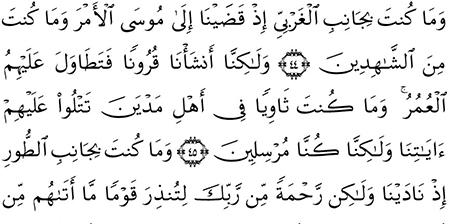 وَمَا كُنتَ بِجَانِبِ ٱلْغَرْبِىِّ إِذْ قَضَيْنَآ إِلَىٰ مُوسَى ٱلْأَمْرَ وَمَا كُنتَ
مِنَ ٱلشَّـٰهِدِينَ ﴿٤٤﴾ وَلَـٰكِنَّآ أَنشَأْنَا قُرُونًا فَتَطَاوَلَ عَلَيْهِمُ
ٱلْعُمُرُ ۚ وَمَا كُنتَ ثَاوِيًا فِىٓ أَهْلِ مَدْيَنَ تَتْلُوا۟ عَلَيْهِمْ
ءَايَـٰتِنَا وَلَـٰكِنَّا كُنَّا مُرْسِلِينَ ﴿٤٥﴾ وَمَا كُنتَ بِجَانِبِ ٱلطُّورِ
إِذْ نَادَيْنَا وَلَـٰكِن رَّحْمَةً مِّن رَّبِّكَ لِتُنذِرَ قَوْمًا مَّآ أَتَىٰهُم مِّن